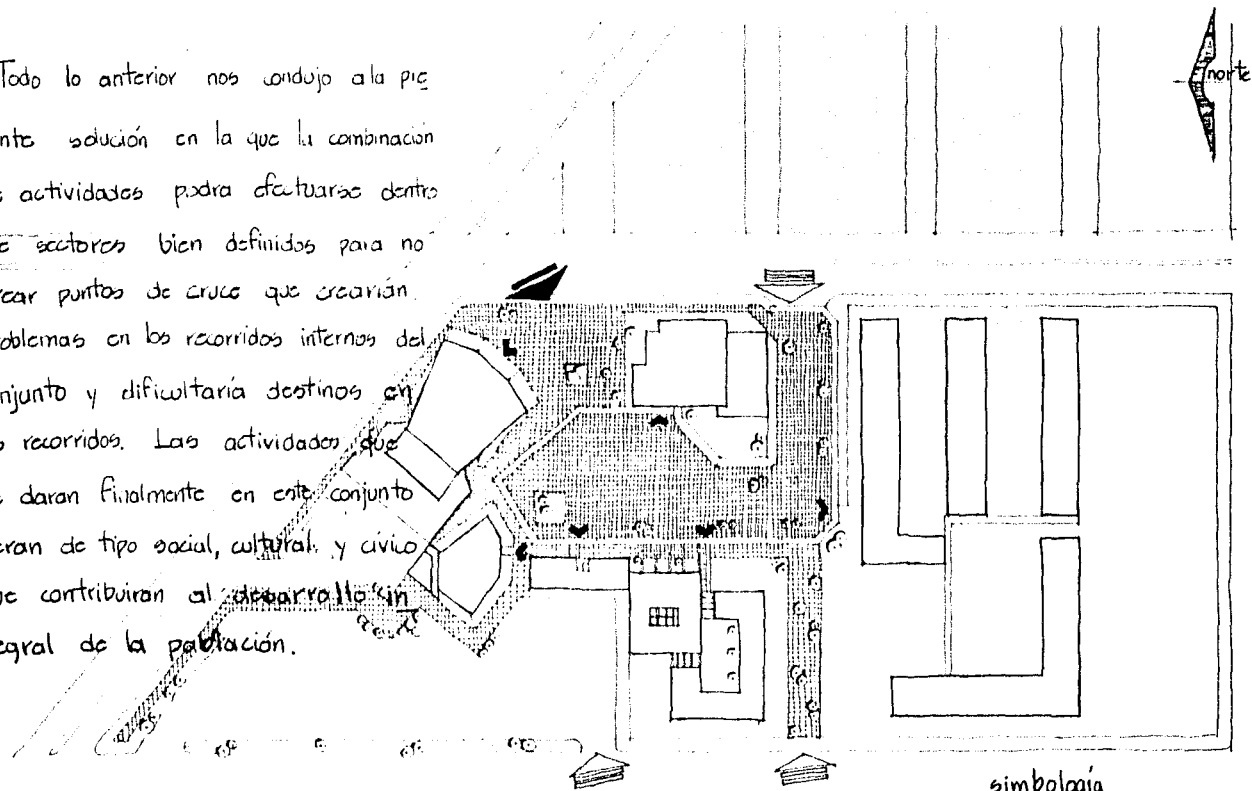 Todo lo anterior nos condujo a la pre
nte solución en la que la combinación
actividades podra efectuarse dentro
e sectores bien definidos para no
ear puntos de cruce que crearían
oblemas en los recorridos internos del
njunto y dificultaría destinos en
s recorridos. Las actividades que
e daran finalmente en este conjunto
eran de tipo social, cultural, y civico
ue contribuiran al desarrollo in
egral de la población.
norte
simbología